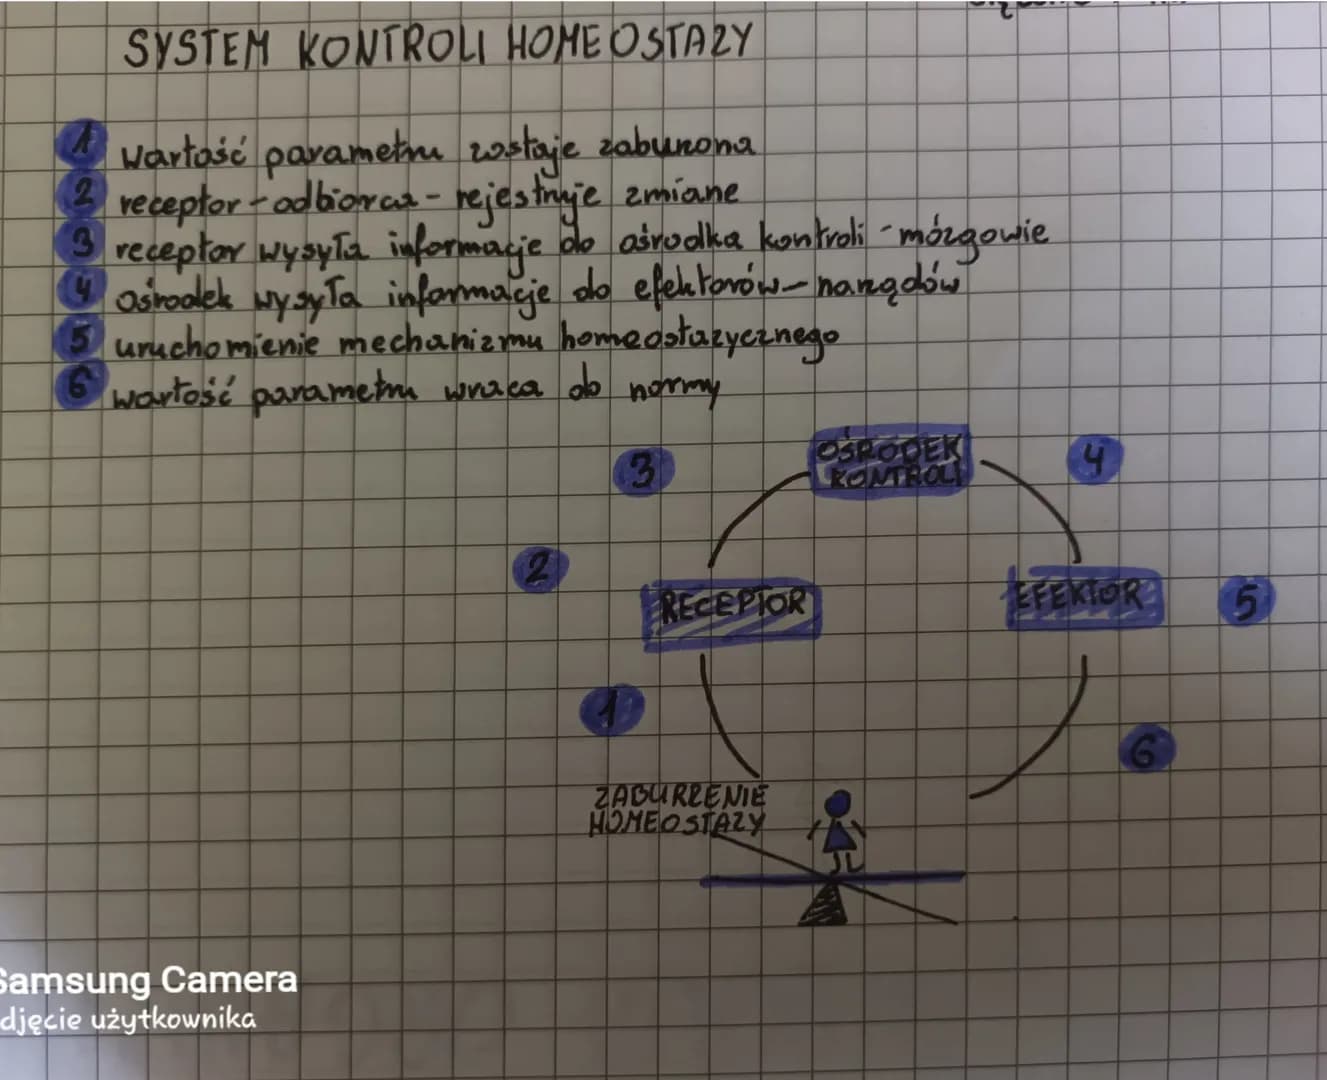 SYSTEM KONTROLI HOMEOSTAZY
1 wartość parametru zostaje zaburzona
2 receptor - odbiorca - rejestruje zmiane
3 receptor wysyła informacje do ośrodka kontroli - mózgowie
4 ośrodek wysyła informacje do efektorów - narządów
5 uruchomienie mechanizmu homeostazycznego
6 wartość parametru wraca do normy
OŚRODEK
KONTROLI
3
4
2
RECEPTOR
EFEKTOR
5
1
6
ZABURZENIE
HOMEOSTAZY
Samsung Camera
djęcie użytkownika